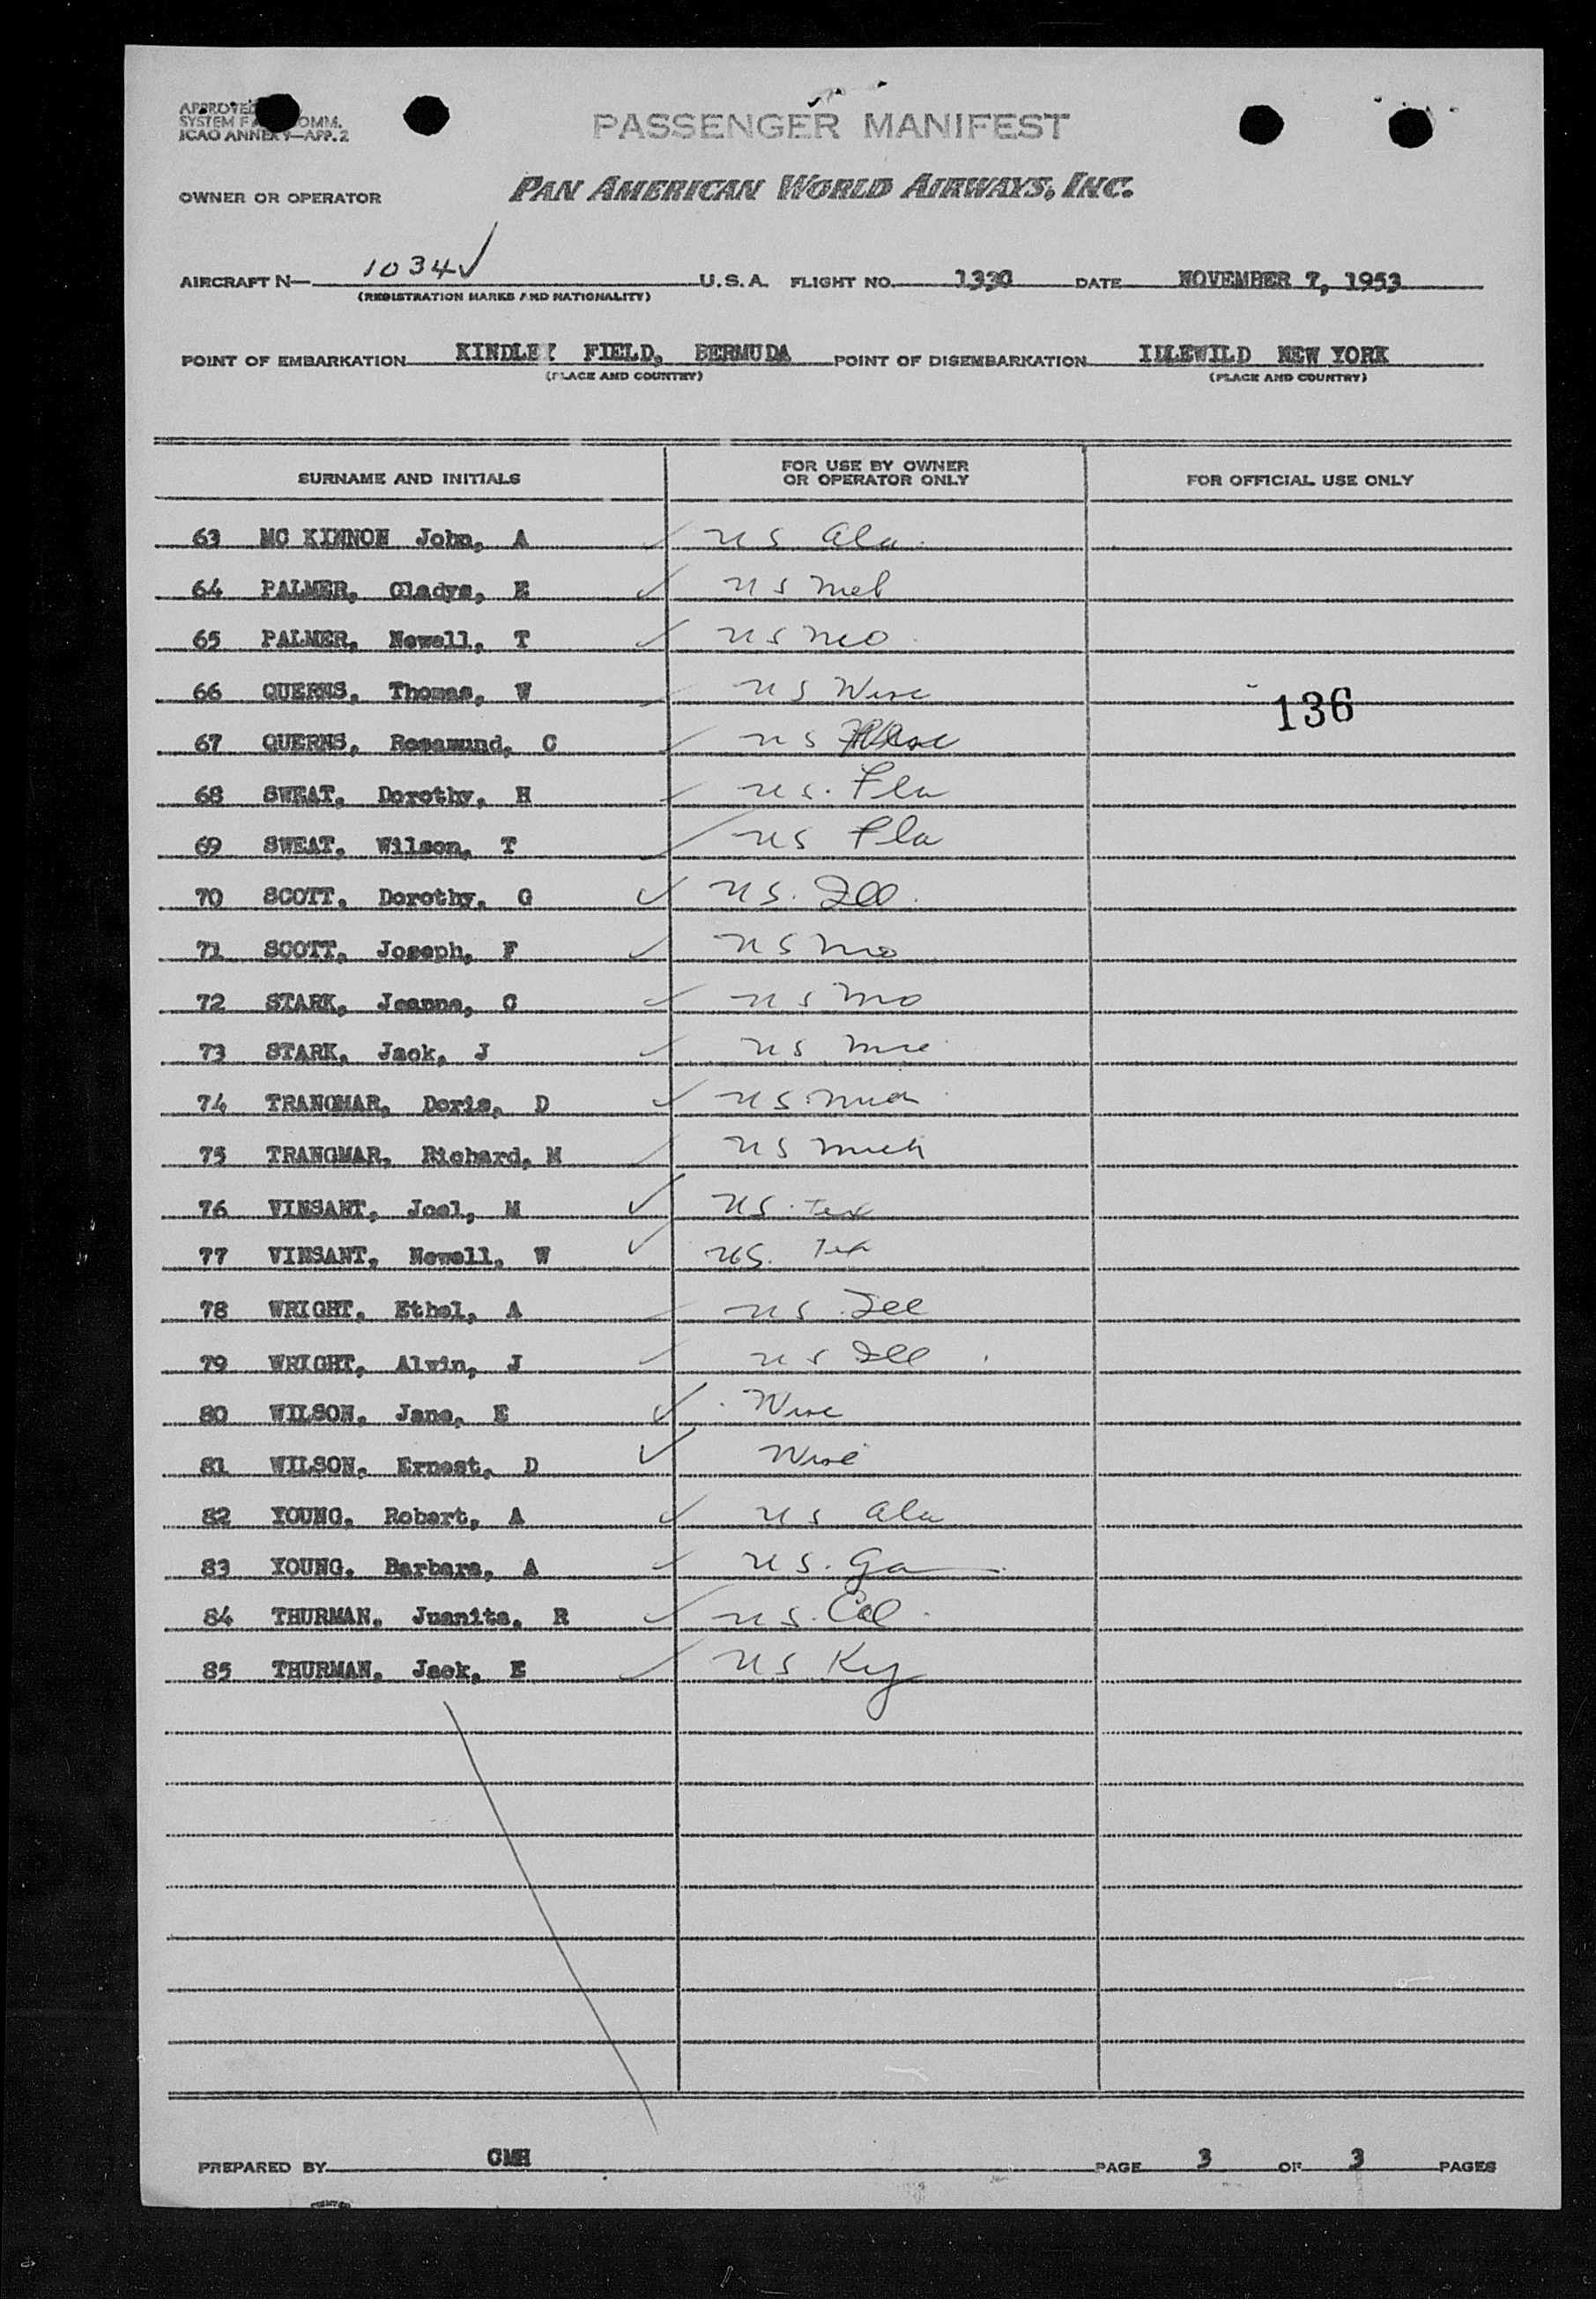 PASSENGER MANIFEST
ICAO ANNEX 9—APP. 2
OWNER OR OPERATOR PAN AMERICAN WORLD AIRWAYS, INC.
AIRCRAFT N— 1034V U.S.A. FLIGHT NO. 1330 DATE NOVEMBER 7, 1953
(REGISTRATION MARKS AND NATIONALITY)
POINT OF EMBARKATION KINDLEY FIELD, BERMUDA POINT OF DISEMBARKATION IDLEWILD NEW YORK
(PLACE AND COUNTRY) (PLACE AND COUNTRY)
SURNAME AND INITIALS FOR USE BY OWNER OR OPERATOR ONLY FOR OFFICIAL USE ONLY
63 MC KINNON John, A US Ala.
64 PALMER, Gladys, E US
65 PALMER, Newell, T US
66 QUERNS, Thomas, W US Wisc
136
67 QUERNS, Rosamund, C US
68 SWEAT, Dorothy, H US. Fla
69 SWEAT, Wilson, T US Fla
70 SCOTT, Dorothy, G US. Ill.
71 SCOTT, Joseph, F US Mo
72 STARK, Jeanne, C US Mo
73 STARK, Jack, J US
74 TRANGMAR, Doris, D US Mich
75 TRANGMAR, Richard, M US Mich
76 VINSANT, Joel, M US. Tex
77 VINSANT, Newell, W US. Tex
78 WRIGHT, Ethel, A US Ill
79 WRIGHT, Alvin, J US Ill
80 WILSON, Jane, E Wisc
81 WILSON, Ernest, D Wisc
82 YOUNG, Robert, A US Ala
83 YOUNG, Barbara, A US. Ga
84 THURMAN, Juanita, R US. Col.
85 THURMAN, Jack, E US Ky
PREPARED BY GMH PAGE 3 OF 3 PAGES